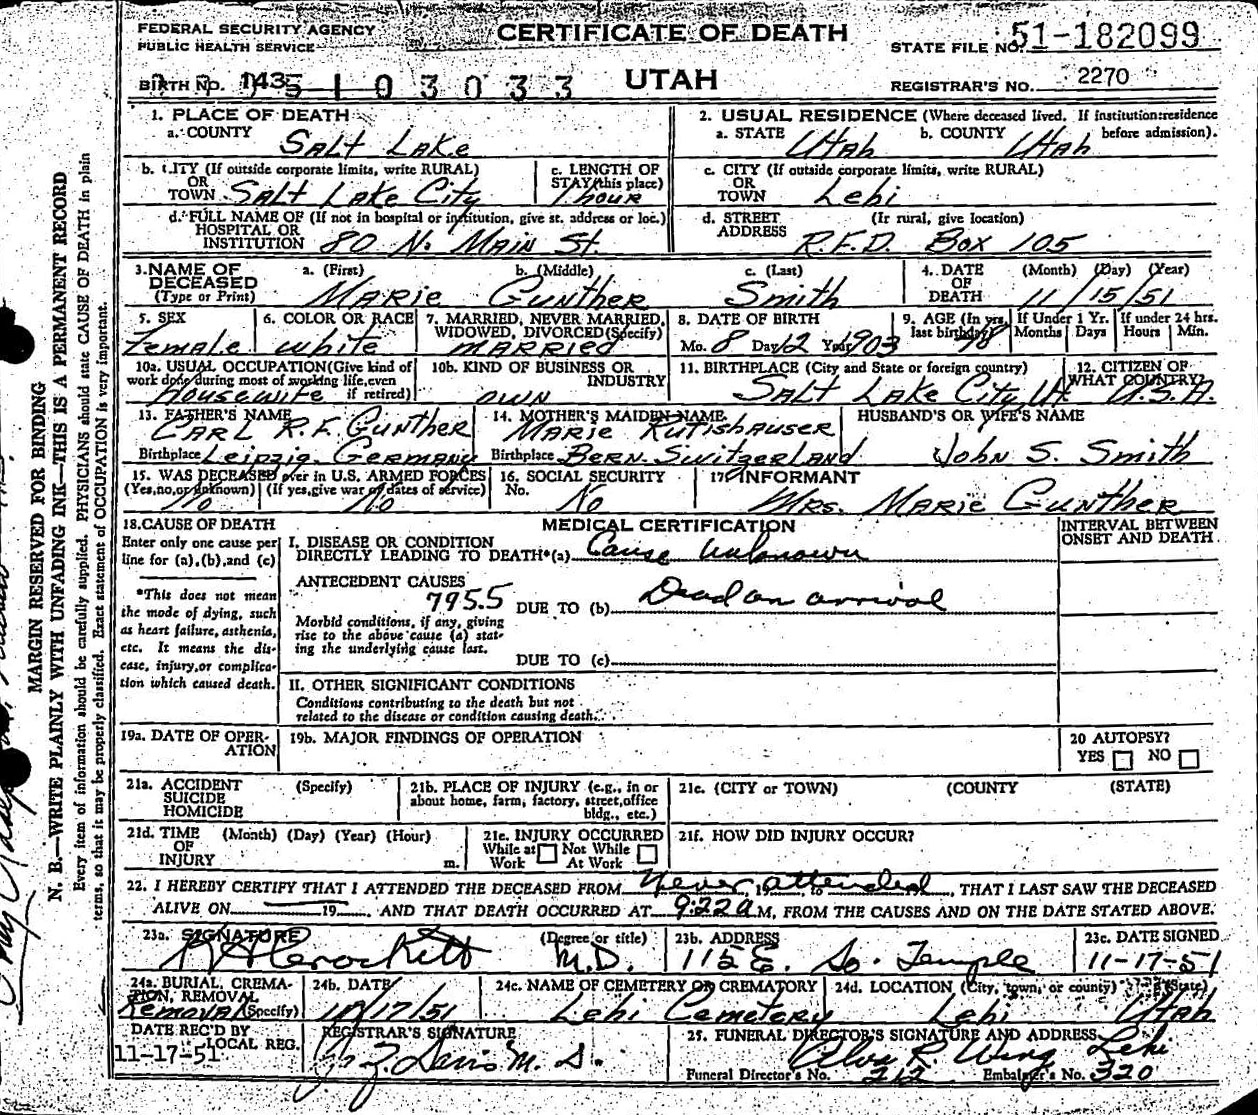 FEDERAL SECURITY AGENCY
PUBLIC HEALTH SERVICE
CERTIFICATE OF DEATH
STATE FILE NO. 51-182099
BIRTH NO. 143 103033
UTAH
REGISTRAR'S NO. 2270
1. PLACE OF DEATH
a. COUNTY
Salt Lake
2. USUAL RESIDENCE (Where deceased lived. If institution: residence before admission).
a. STATE Utah b. COUNTY Utah
b. CITY (If outside corporate limits, write RURAL)
OR
TOWN Salt Lake City
c. LENGTH OF
STAY (this place)
1 hour
c. CITY (If outside corporate limits, write RURAL)
OR
TOWN Lehi
d. FULL NAME OF (If not in hospital or institution, give st. address or loc.)
HOSPITAL OR
INSTITUTION 80 N. Main St.
d. STREET (If rural, give location)
ADDRESS R.F.D. Box 105
3. NAME OF
DECEASED
(Type or Print)
a. (First) b. (Middle) c. (Last)
Marie Gunther Smith
4. DATE (Month) (Day) (Year)
OF
DEATH 11/15/51
5. SEX
Female
6. COLOR OR RACE
white
7. MARRIED, NEVER MARRIED,
WIDOWED, DIVORCED (Specify)
Married
8. DATE OF BIRTH
Mo. 8 Day 12 Year 1903
9. AGE (In yrs. last birthday) 48
If Under 1 Yr. Months Days
If under 24 hrs. Hours Min.
10a. USUAL OCCUPATION (Give kind of
work done during most of working life, even
if retired)
Housewife
10b. KIND OF BUSINESS OR
INDUSTRY
own
11. BIRTHPLACE (City and State or foreign country)
Salt Lake City Ut.
12. CITIZEN OF
WHAT COUNTRY?
U.S.A.
13. FATHER'S NAME
Carl R.F. Gunther
Birthplace Leipzig Germany
14. MOTHER'S MAIDEN NAME
Marie Rutishauser
Birthplace Bern. Switzerland
HUSBAND'S OR WIFE'S NAME
John S. Smith
15. WAS DECEASED ever in U.S. ARMED FORCES
(Yes, no, or unknown) (If yes, give war or dates of service)
No No
16. SOCIAL SECURITY
No.
No
17. INFORMANT
Mrs. Marie Gunther
18. CAUSE OF DEATH
Enter only one cause per
line for (a), (b), and (c)
*This does not mean
the mode of dying, such
as heart failure, asthenia,
etc. It means the dis-
ease, injury, or complica-
tion which caused death.
MEDICAL CERTIFICATION
INTERVAL BETWEEN
ONSET AND DEATH
I. DISEASE OR CONDITION
DIRECTLY LEADING TO DEATH*(a) Cause unknown
ANTECEDENT CAUSES
795.5 DUE TO (b) Dead on arrival
Morbid conditions, if any, giving
rise to the above cause (a) stat-
ing the underlying cause last.
DUE TO (c)
II. OTHER SIGNIFICANT CONDITIONS
Conditions contributing to the death but not
related to the disease or condition causing death.
19a. DATE OF OPER-
ATION
19b. MAJOR FINDINGS OF OPERATION
20 AUTOPSY?
YES NO
21a. ACCIDENT (Specify)
SUICIDE
HOMICIDE
21b. PLACE OF INJURY (e.g., in or
about home, farm, factory, street, office
bldg., etc.)
21c. (CITY or TOWN) (COUNTY (STATE)
21d. TIME (Month) (Day) (Year) (Hour)
OF
INJURY m.
21e. INJURY OCCURRED
While at Not While
Work At Work
21f. HOW DID INJURY OCCUR?
22. I HEREBY CERTIFY THAT I ATTENDED THE DECEASED FROM Never, 19 to attended, THAT I LAST SAW THE DECEASED
ALIVE ON 19 , AND THAT DEATH OCCURRED AT 9:22 a M, FROM THE CAUSES AND ON THE DATE STATED ABOVE.
23a. SIGNATURE (Degree or title)
Crockett M.D.
23b. ADDRESS
115 E. So. Temple
23c. DATE SIGNED
11-17-51
24a. BURIAL, CREMA-
TION, REMOVAL
(Specify)
Removal
24b. DATE
17/51
24c. NAME OF CEMETERY OR CREMATORY
Lehi Cemetery
24d. LOCATION (City, town, or county) (State)
Lehi Utah
DATE REC'D BY
LOCAL REG.
11-17-51
REGISTRAR'S SIGNATURE
25. FUNERAL DIRECTOR'S SIGNATURE AND ADDRESS
R Wing Lehi
Funeral Director's No. 212 Embalmer's No. 320
MARGIN RESERVED FOR BINDING
N. B.—WRITE PLAINLY WITH UNFADING INK—THIS IS A PERMANENT RECORD
Every item of information should be carefully supplied. PHYSICIANS should state CAUSE OF DEATH in plain
terms, so that it may be properly classified. Exact statement of OCCUPATION is very important.